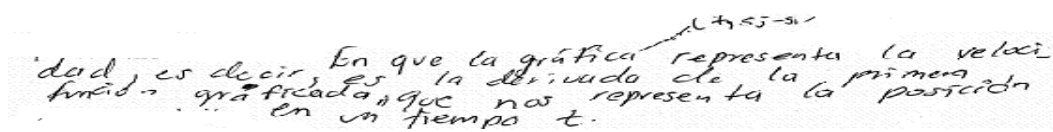 En que la gráfica representa la veloci-
dad, es decir, es la derivada de la primera
función graficada, que nos representa la posición
en un tiempo t.